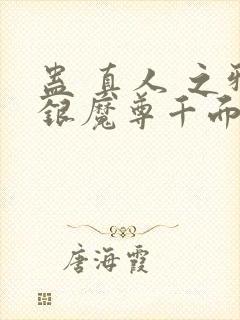 蛊真人之邪
银魔尊千而
唐海霞